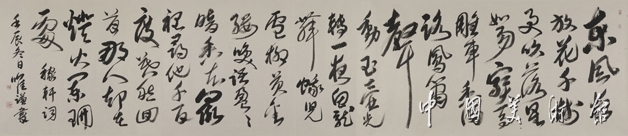 东风夜
放花千树
更吹落星
如雨宝马
雕车香满
路凤箫
声
动玉壶光
转一夜鱼龙
舞蛾儿
雪柳黄金
缕笑语盈盈
暗香去众
里寻他千百
度蓦然回
首那人却在
灯火阑珊
处 稼轩词
壬辰冬日 惟谦书
中国美术馆